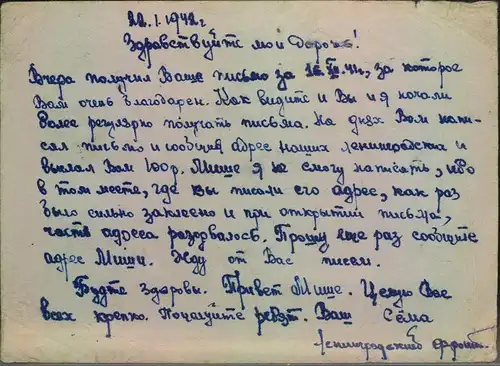 22.I.1942г.
Здравствуйте мои дорогие!
Вчера получил Ваше письмо за 16.XII.41г., за которое
Вам очень благодарен. Как видите и Вы и я начали
более регулярно получать письма. На днях Вам напи-
сал письмо и сообщил адрес наших ленинградских и
выслал Вам 100р. Мише я не смогу написать, ибо
в том месте, где вы писали его адрес, как раз
было сильно заклеено и при открытии письма,
часть адреса разорвалось. Прошу еще раз сообщите
адрес Миши. Жду от Вас писем.
Будте здоровы. Привет Мише. Целую Вас
всех крепко. Поцелуйте ребят. Ваш Сёма
Ленинградский фронт.